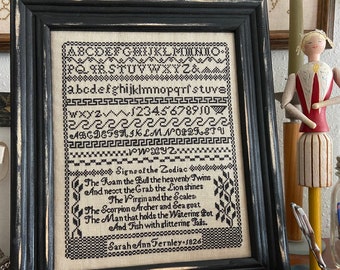 ABCDEFGHIJKLMNO
PQRSTUVWXYZ&
abcdefghijklmnopqrſstuvw
wxyz 12345678910
ABCDEFGHIJKLMNOPQRSTU
VWXYZ
Signs of the Zodiac
The Ram the Bull the heavenly Twins
And next the Crab the Lion shines
The Virgin and the Scales
The Scorpion Archer and Sea goat
The Man that holds the Watering Pot
And Fish with glittering Tails.
Sarah Ann Fernley 1826